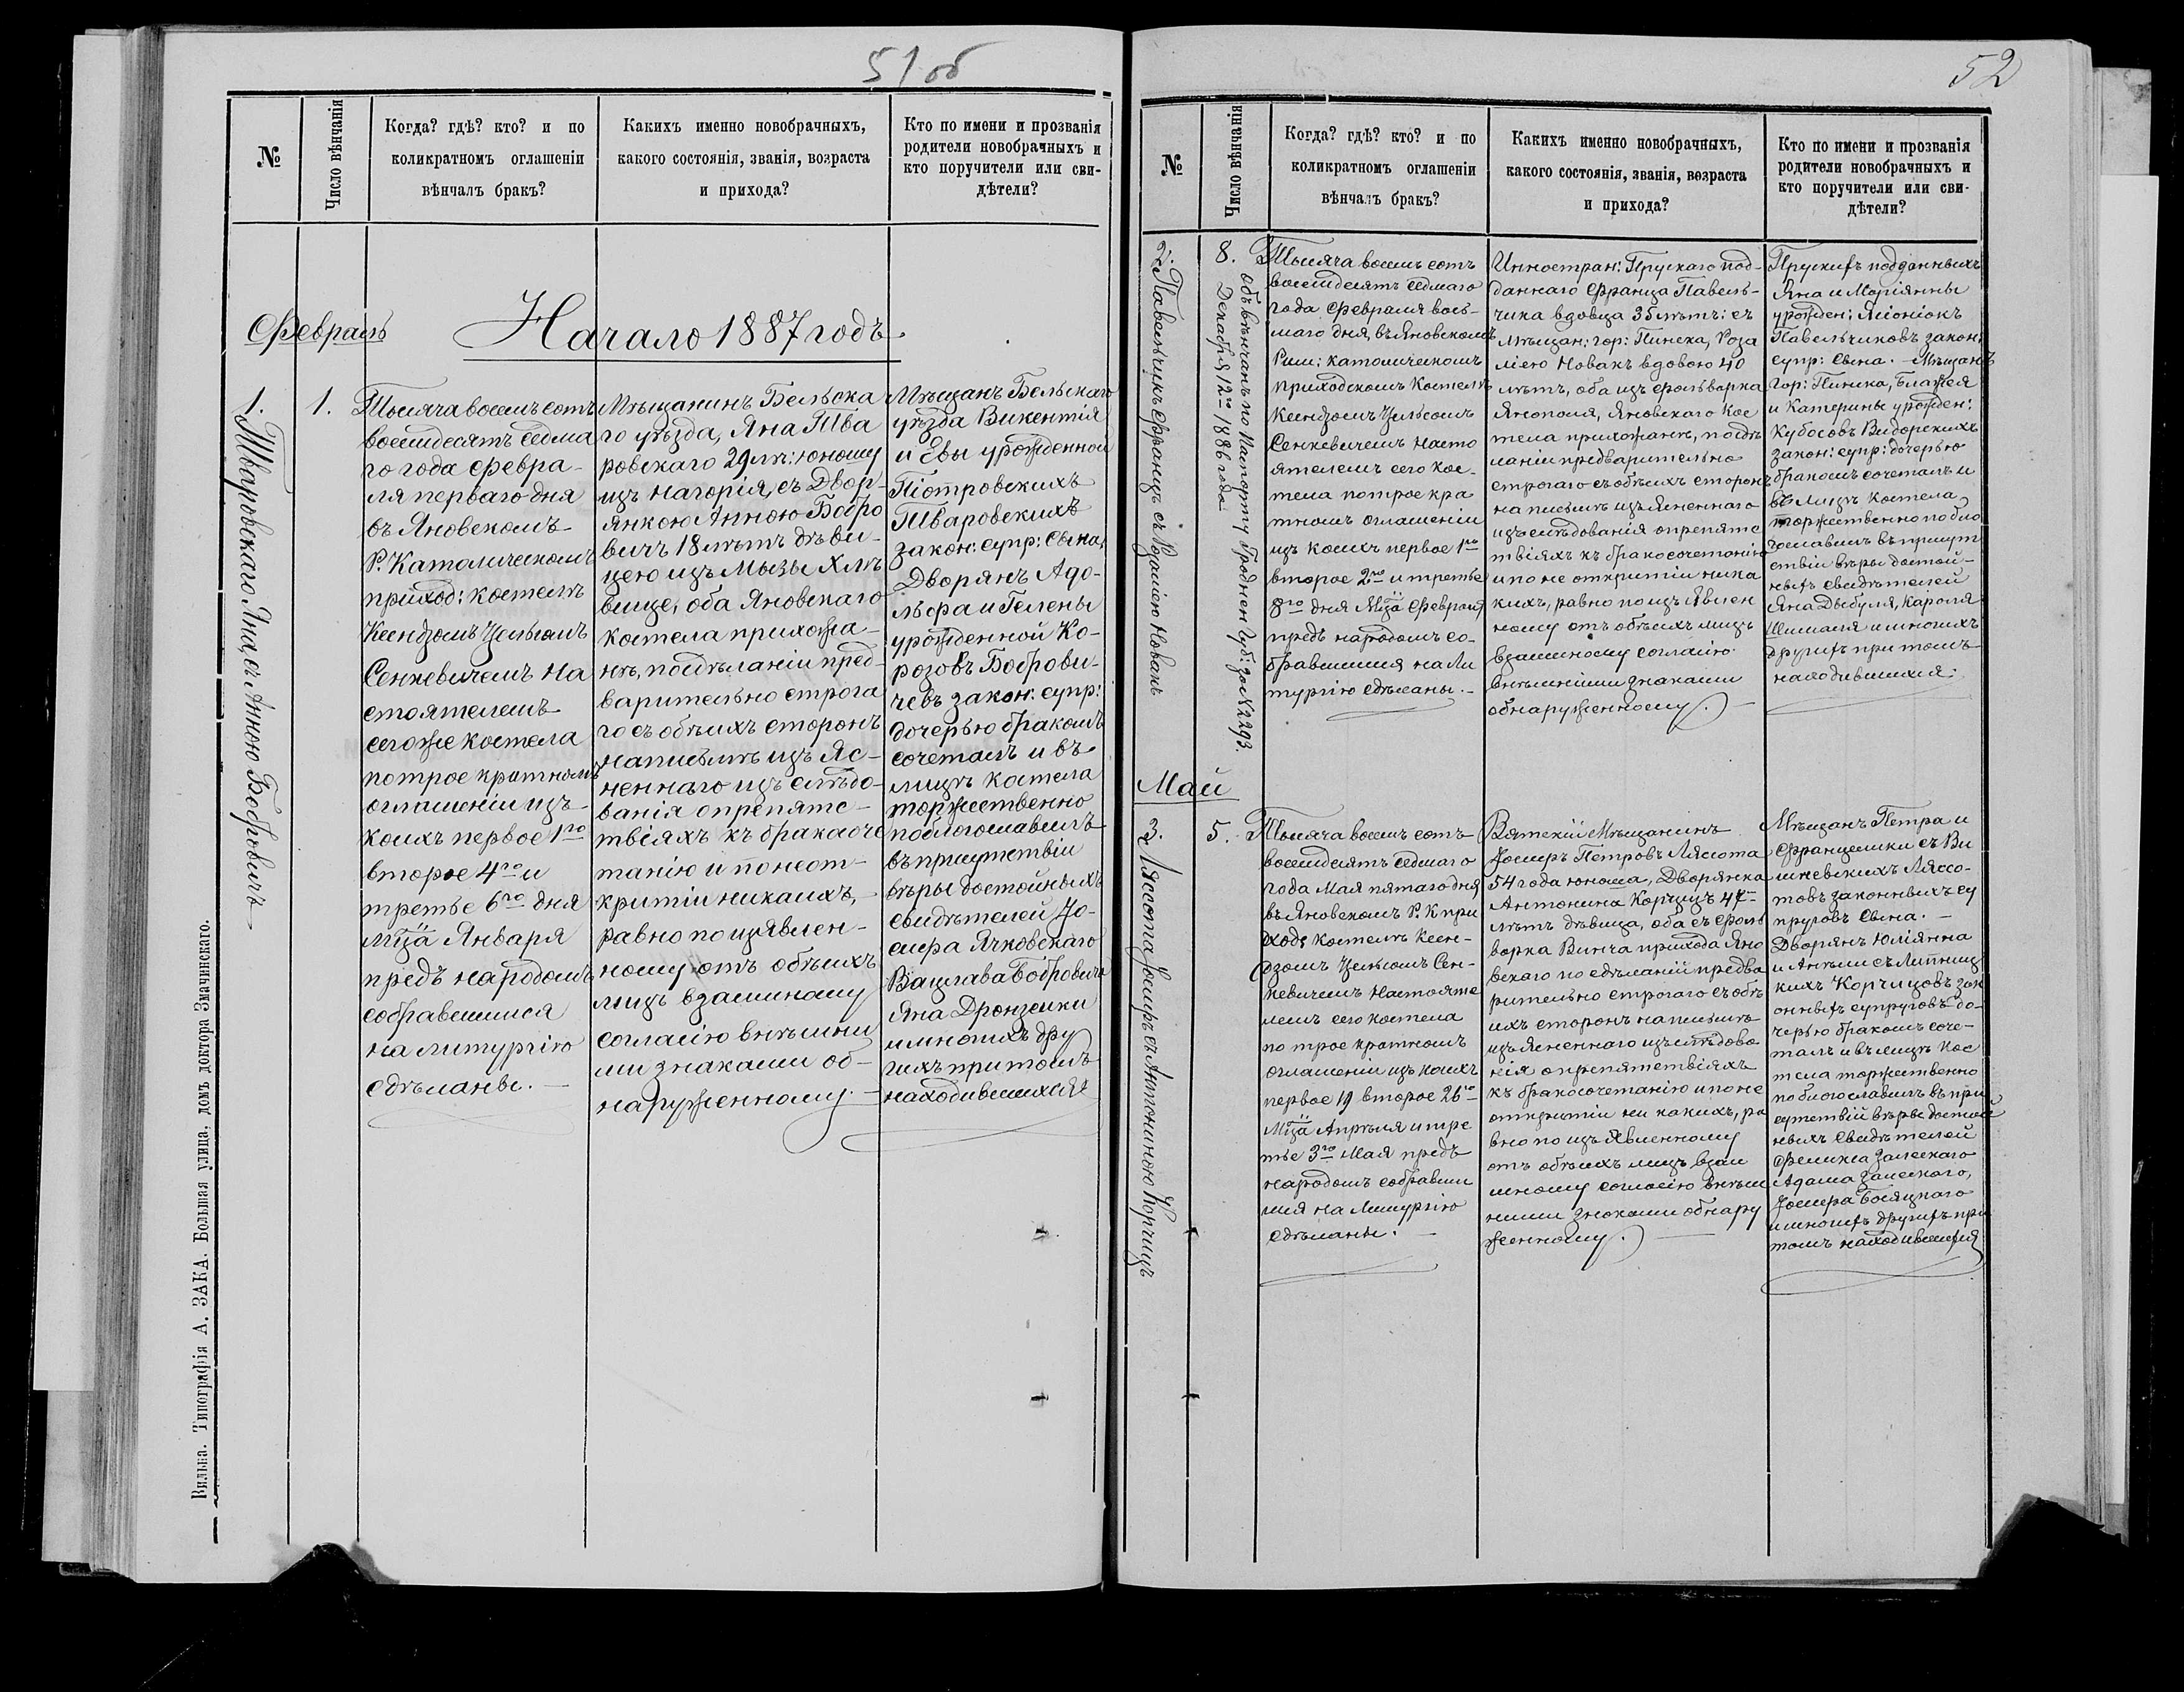 51 об
№
Число вѣнчанія
Когда? гдѣ? кто? и по
коликратномъ оглашеніи
вѣнчалъ бракъ?
Какихъ именно новобрачныхъ,
какого состоянія, званія, возраста
и прихода?
Кто по имени и прозванія
родители новобрачныхъ и
кто поручители или сви-
дѣтели?
Февраль
Начало 1887 годъ
1.
Тваровскаго Яна, съ Анною Бобровичъ
1.
Тысяча восемь сотъ
восемдесятъ седма
го года февра-
ля перваго дня
въ Яновскомъ
Р. Католическомъ
приход: костелѣ
Ксендзомъ Цельсомъ
Сенкевичемъ На
стоятелемъ
сегоже костела
по трое кратномъ
оглашеніи изъ
коихъ первое 1го
второе 4го и
третье 6го дня
Мца Января
предъ народомъ
собравшимся
на литургію
сдѣланы.
Мѣщанинъ Бельска
го уѣзда, Яна Тва
ровскаго 29 лѣ: юношу
изъ Нагорія, съ Двор-
янкою Анною Бобро
вичъ 18 лѣтъ дѣви-
цею изъ Мызы Хлѣ
вище, оба Яновскаго
костела прихожа-
нѣ, по сдѣланіи пред-
варительно строга
го съ обѣихъ сторонъ
написьмѣ изъ Яс-
неннаго изъ слѣдо-
ванія о препятс-
твіяхъ къ бракасоче
танію и по неот-
критіи никаихъ,
равно по изъявлен-
ному отъ обѣихъ
лицъ взаимному
согласію внѣшни
ми знаками об-
наруженному.
Мѣщанъ Бельскаго
уѣзда Викентія
и Евы урожденной
Піотровскихъ
Тваровскихъ
закон: супр: сына,
Дворянъ Адо-
льфа и Гелены
урожденной Ко-
розовъ Боброви-
чевъ закон: супр:
дочерью бракомъ
сочеталъ и въ
лицѣ костела
торжественно
поблогославилъ
въ присутствіи
вѣры достойныхъ
свидѣтелей Іо-
сифа Ячковскаго
Вацлава Бобровича
Яна Дронзейки
и многихъ дру
гихъ при томъ
находившихся
Вильна. Типографія А. ЗАКА. Большая улица, домъ доктора Змачинскаго.
52
№
Число вѣнчанія
Когда? гдѣ? кто? и по
коликратномъ оглашеніи
вѣнчалъ бракъ?
Какихъ именно новобрачныхъ,
какого состоянія, званія, возраста
и прихода?
Кто по имени и прозванія
родители новобрачныхъ и
кто поручители или сви-
дѣтели?
2.
Павельчикъ Францъ съ Розаліею Новакъ
8.
Объ вѣнчанъ по Рапорту Гроднен Губ: за №2293.
Декабря 12го 1886 года
Тысяча восемь сотъ
восемдесятъ седмаго
года Февраля вось-
маго дня, въ Яновскомъ
Рим: католическомъ
приходскомъ Костелѣ
Ксендзомъ Цельсомъ
Сенкевичемъ Насто
ятелемъ сего кос-
тела по трое кра
тномъ оглашеніи
изъ коихъ первое 1го
второе 2го и третье
8го дня Мца Февраля
предъ народомъ со-
бравшимся на Ли
тургію сдѣланы.
Инностран: Прускаго под-
даннаго Франца Павель-
чика вдовца 35 лѣтъ: съ
Мѣщан: гор: Пинска, Роза
ліею Новакъ вдовою 40
лѣтъ, оба изъ фольварка
Янополя, Яновскаго Кос
тела прихожанѣ, по сдѣ
ланіи предварительно
строгаго съ обѣихъ сторонъ
на письмѣ изъ Ясненнаго
изъ слѣдованія о препятс
твіяхъ къ бракосочетанію
и по не откритіи ника
кихъ, равно по изъ Явлен
ному отъ обѣихъ лицъ
взаимному согласію
внѣшними знаками
обнаруженному.
Прускихъ подданныхъ
Яна и Маріянны
урожден: Яліоніокъ
Павельчиковъ закон:
супр: сына. — Мѣщанъ
гор: Пинска, Блажея
и Катерины урожден:
Кубосовъ Видорскихъ
закон: супр: дочерью
бракомъ сочеталъ и
въ лицѣ костела
торжественно побло
гославилъ въ присут
ствіи вѣры достой-
ныхъ свидѣтелей
Яна Дыбуля, Кароля
Шималя и многихъ
другихъ при томъ
находившихся.
Май
3.
Ляссота Іосифъ съ Антониною Корчицъ
5.
Тысяча восемь сотъ
восемдесятъ седмаго
года Мая пятаго дня
въ Яновскомъ Р. К при
ход: костелѣ Ксен-
дзомъ Цельсомъ Сен-
кевичемъ Настояте
лемъ сего костела
по трое кратномъ
оглашеніи изъ коихъ
первое 19 второе 26го
Мца Апрѣля и тре
тье 3го Мая предъ
народомъ собравши
мся на Литургію
сдѣланы.
Вятскій Мѣщанинъ
Іосифъ Петровъ Ляссота
54 года юноша, Дворянка
Антонина Корчицъ 47
лѣтъ дѣвица, оба съ фоль
варка Винча прихода Яно
вскаго по сдѣланіи предва
рительно строгаго съ обѣ
ихъ сторонъ на письмѣ
изъ Ясненнаго изъ слѣдова
нія о препятствіяхъ
къ бракосочетанію и по не
открытіи ни какихъ, ра
вно по изъ Явленному
отъ обѣихъ лицъ взаи
мному согласію внѣш
ними знаками обнару
женному.
Мѣщанъ Петра и
Францишки съ Ви
шневскихъ Ляссо-
товъ законныхъ су
пруговъ сына. —
Дворянъ Юліянна
и Анѣли съ Липниц
кихъ Корчицовъ зак
онныхъ супруговъ до-
черью бракомъ соче-
талъ и въ лицѣ Кос
тела торжественно
поблогославилъ въ при
сутствіи вѣры достой
ныхъ свидѣтелей
Феликса Залескаго
Адама Залескаго,
Іосифа Босяцкаго
и многихъ другихъ при
томъ находившихся